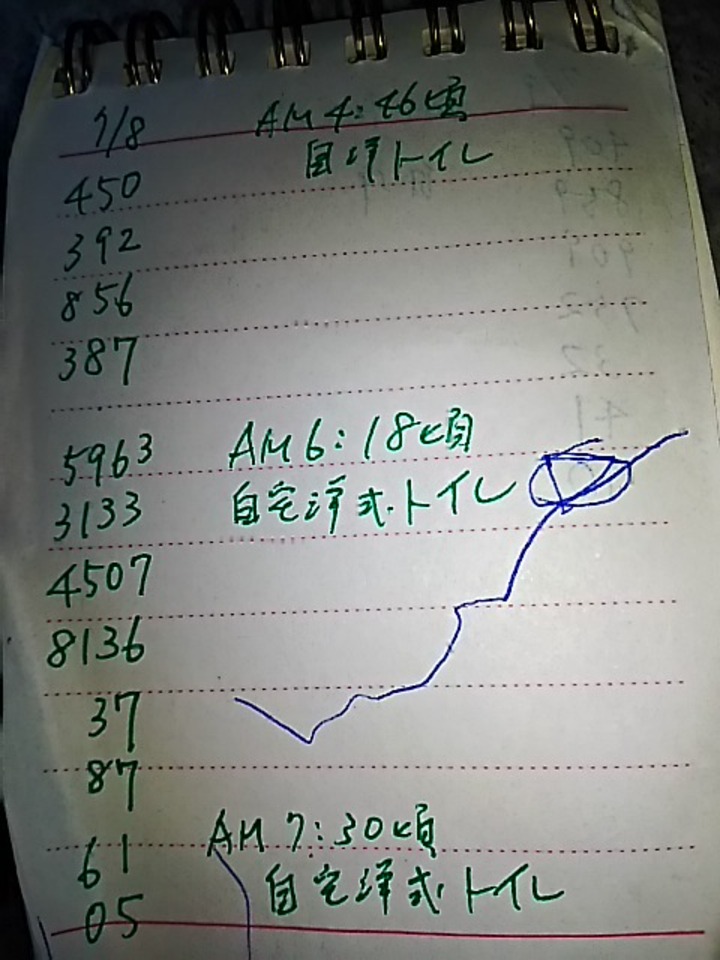 7/8 AM4:46頃
自洋トイレ
450
392
856
387
5963 AM6:18頃
3133 自宅洋式トイレ
4507
8136
37
87
61 AM7:30頃
05 自宅洋式トイレ